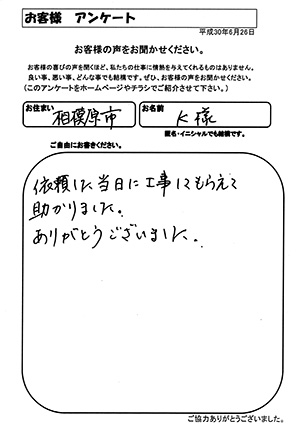 お客様 アンケート
平成30年6月26日
お客様の声をお聞かせください。
お客様の喜びの声を聞くほど、私たちの仕事に情熱を与えてくれるものはありません。
良い事、悪い事、どんな事でも結構です。ぜひ、お客様の声をお聞かせください。
(このアンケートをホームページやチラシでご紹介させて下さい。)
お住まい 相模原市 お名前 K様
匿名・イニシャルでも結構です。
ご自由にお書きください。
依頼した当日に工事してもらえて
助かりました。
ありがとうございました。
ご協力ありがとうございました。